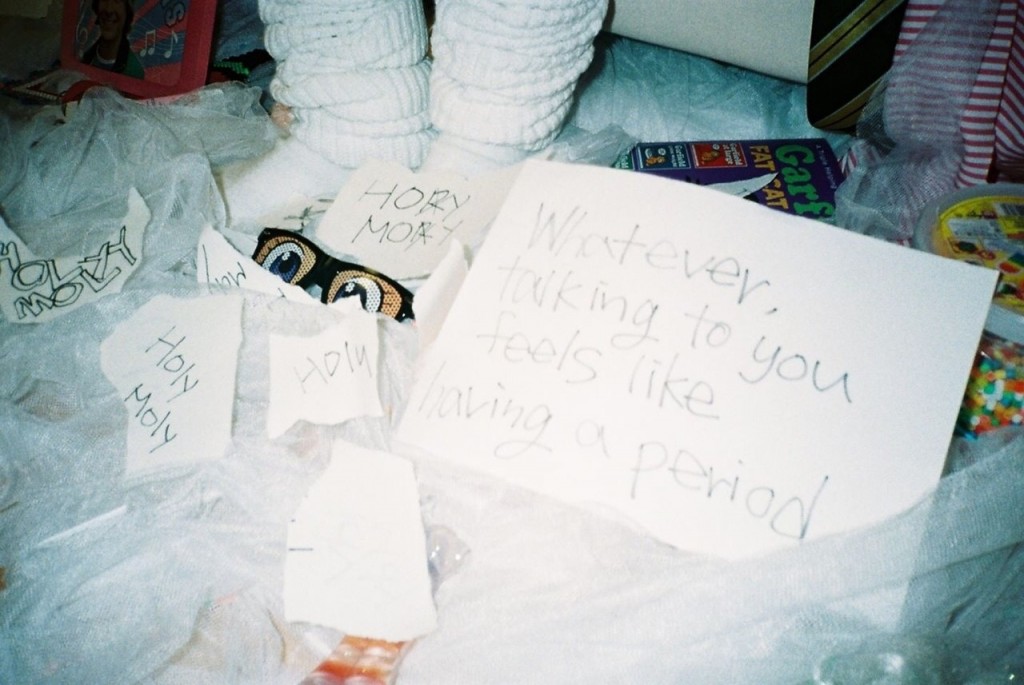 HORY
MORY
HOLY
MOLY
Moly
HOLY
MOLY
HOLY
Whatever,
talking to you
feels like
having a period
Garf
FAT CAT